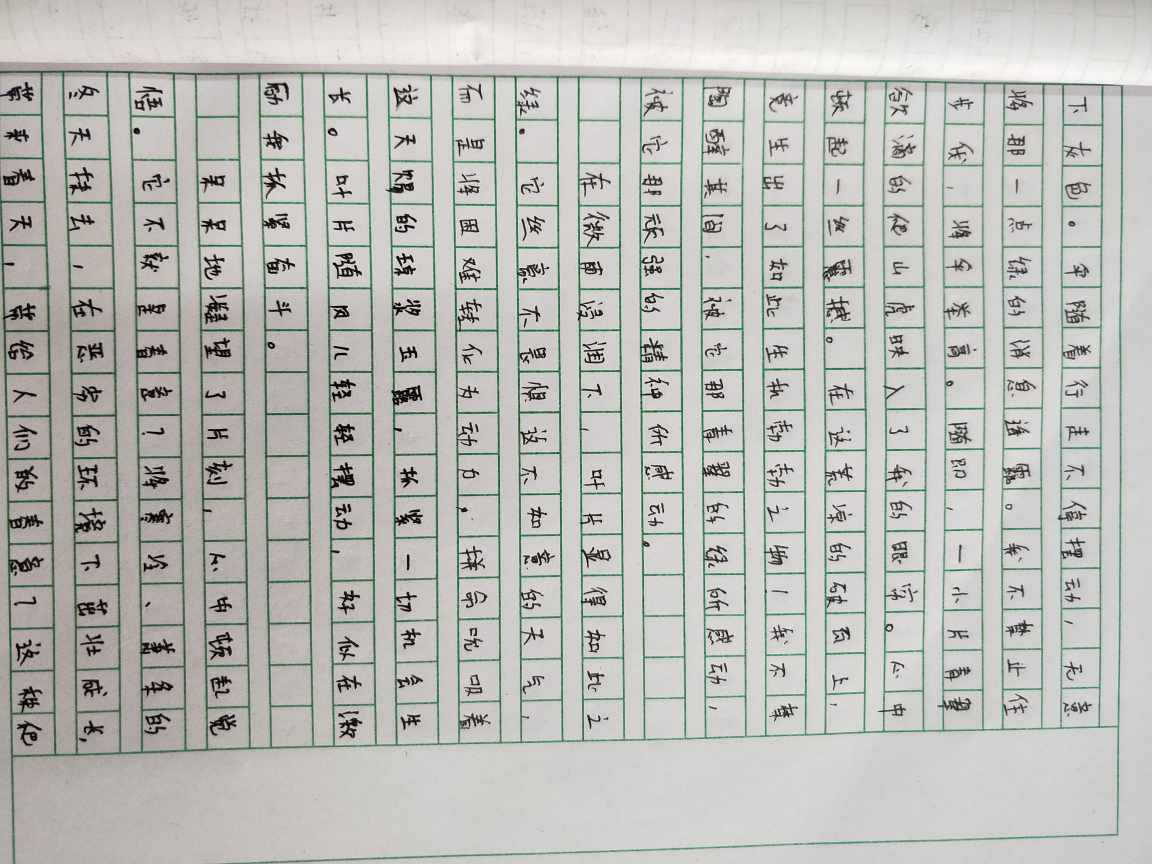 下灰色。伞随着行走不停摆动，无意
将那一点绿的消息透露。我不禁止住
步伐，将伞举高。随即，一小片青翠
欲滴的爬山虎映入了我的眼帘。心中
顿起一丝震撼。在这荒凉的破瓦上，
竟生出了如此生机勃勃之物！我不禁
陶醉其间，被它那青翠的绿所感动，
被它那顽强的精神所感动。
在微雨浸润下，叶片显得如此之
绿。它丝毫不畏惧这不如意的天气，
而是将困难转化为动力，拼命吮吸着
这天赐的琼浆玉露，抓紧一切机会生
长。叶片随风儿轻轻摆动，好似在激
励我抓紧奋斗。
呆呆地凝望了片刻，心中顿起觉
悟。它不就是春意？将寒冷、萧条的
冬天抹去，在恶劣的环境下茁壮成长，
带来春天，带给人们的春意？这株爬